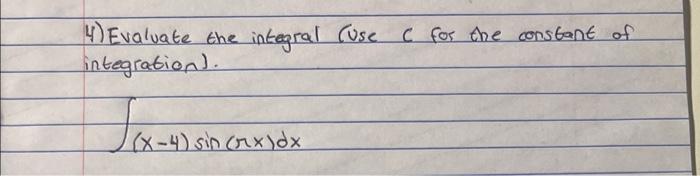 4) Evaluate the integral (use C for the constant of
integration).
∫(x-4) sin(πx)dx